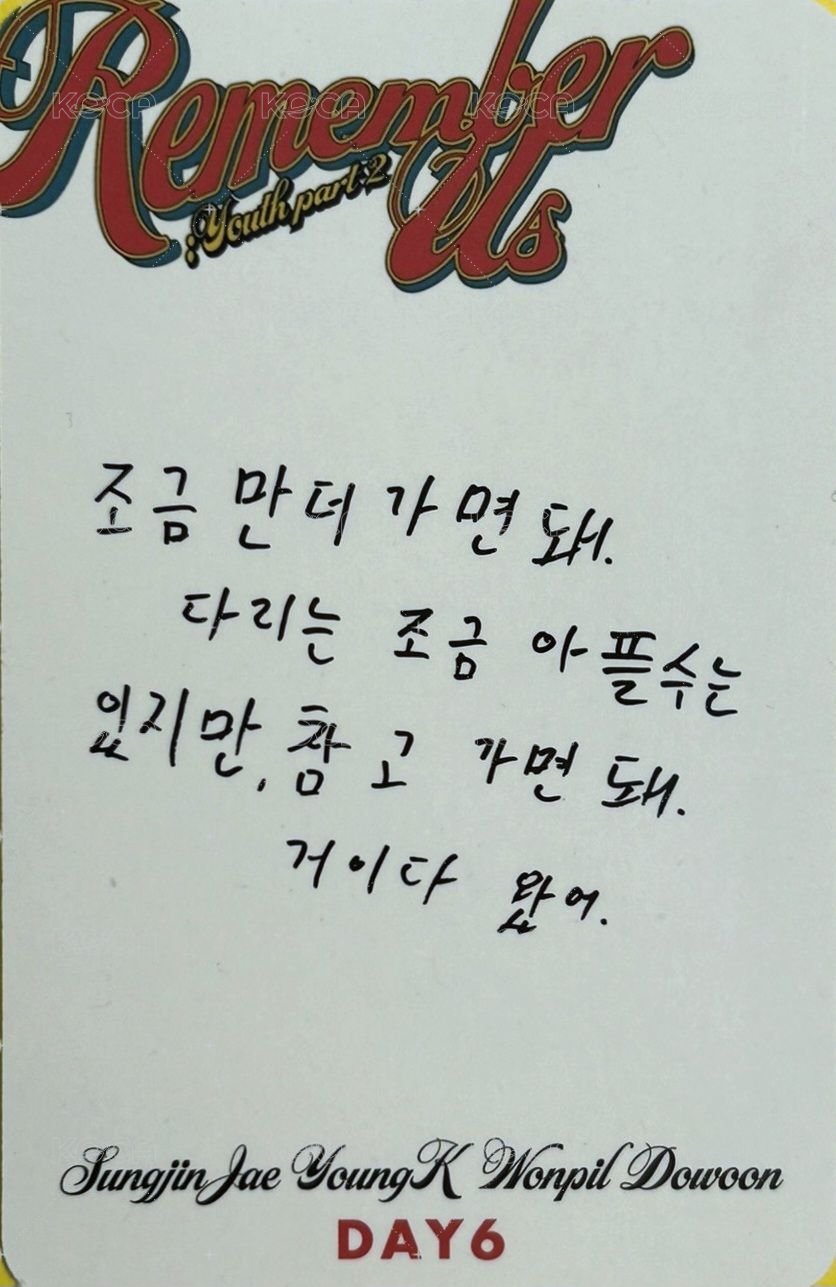 Remember
Us
:Youth part 2
KOCA KOCA KOCA
조금 만 더 가면 돼.
다리는 조금 아플수는
있지만, 참고 가면 돼.
거이다 왔어.
Sungjin Jae YoungK Wonpil Dowoon
DAY6